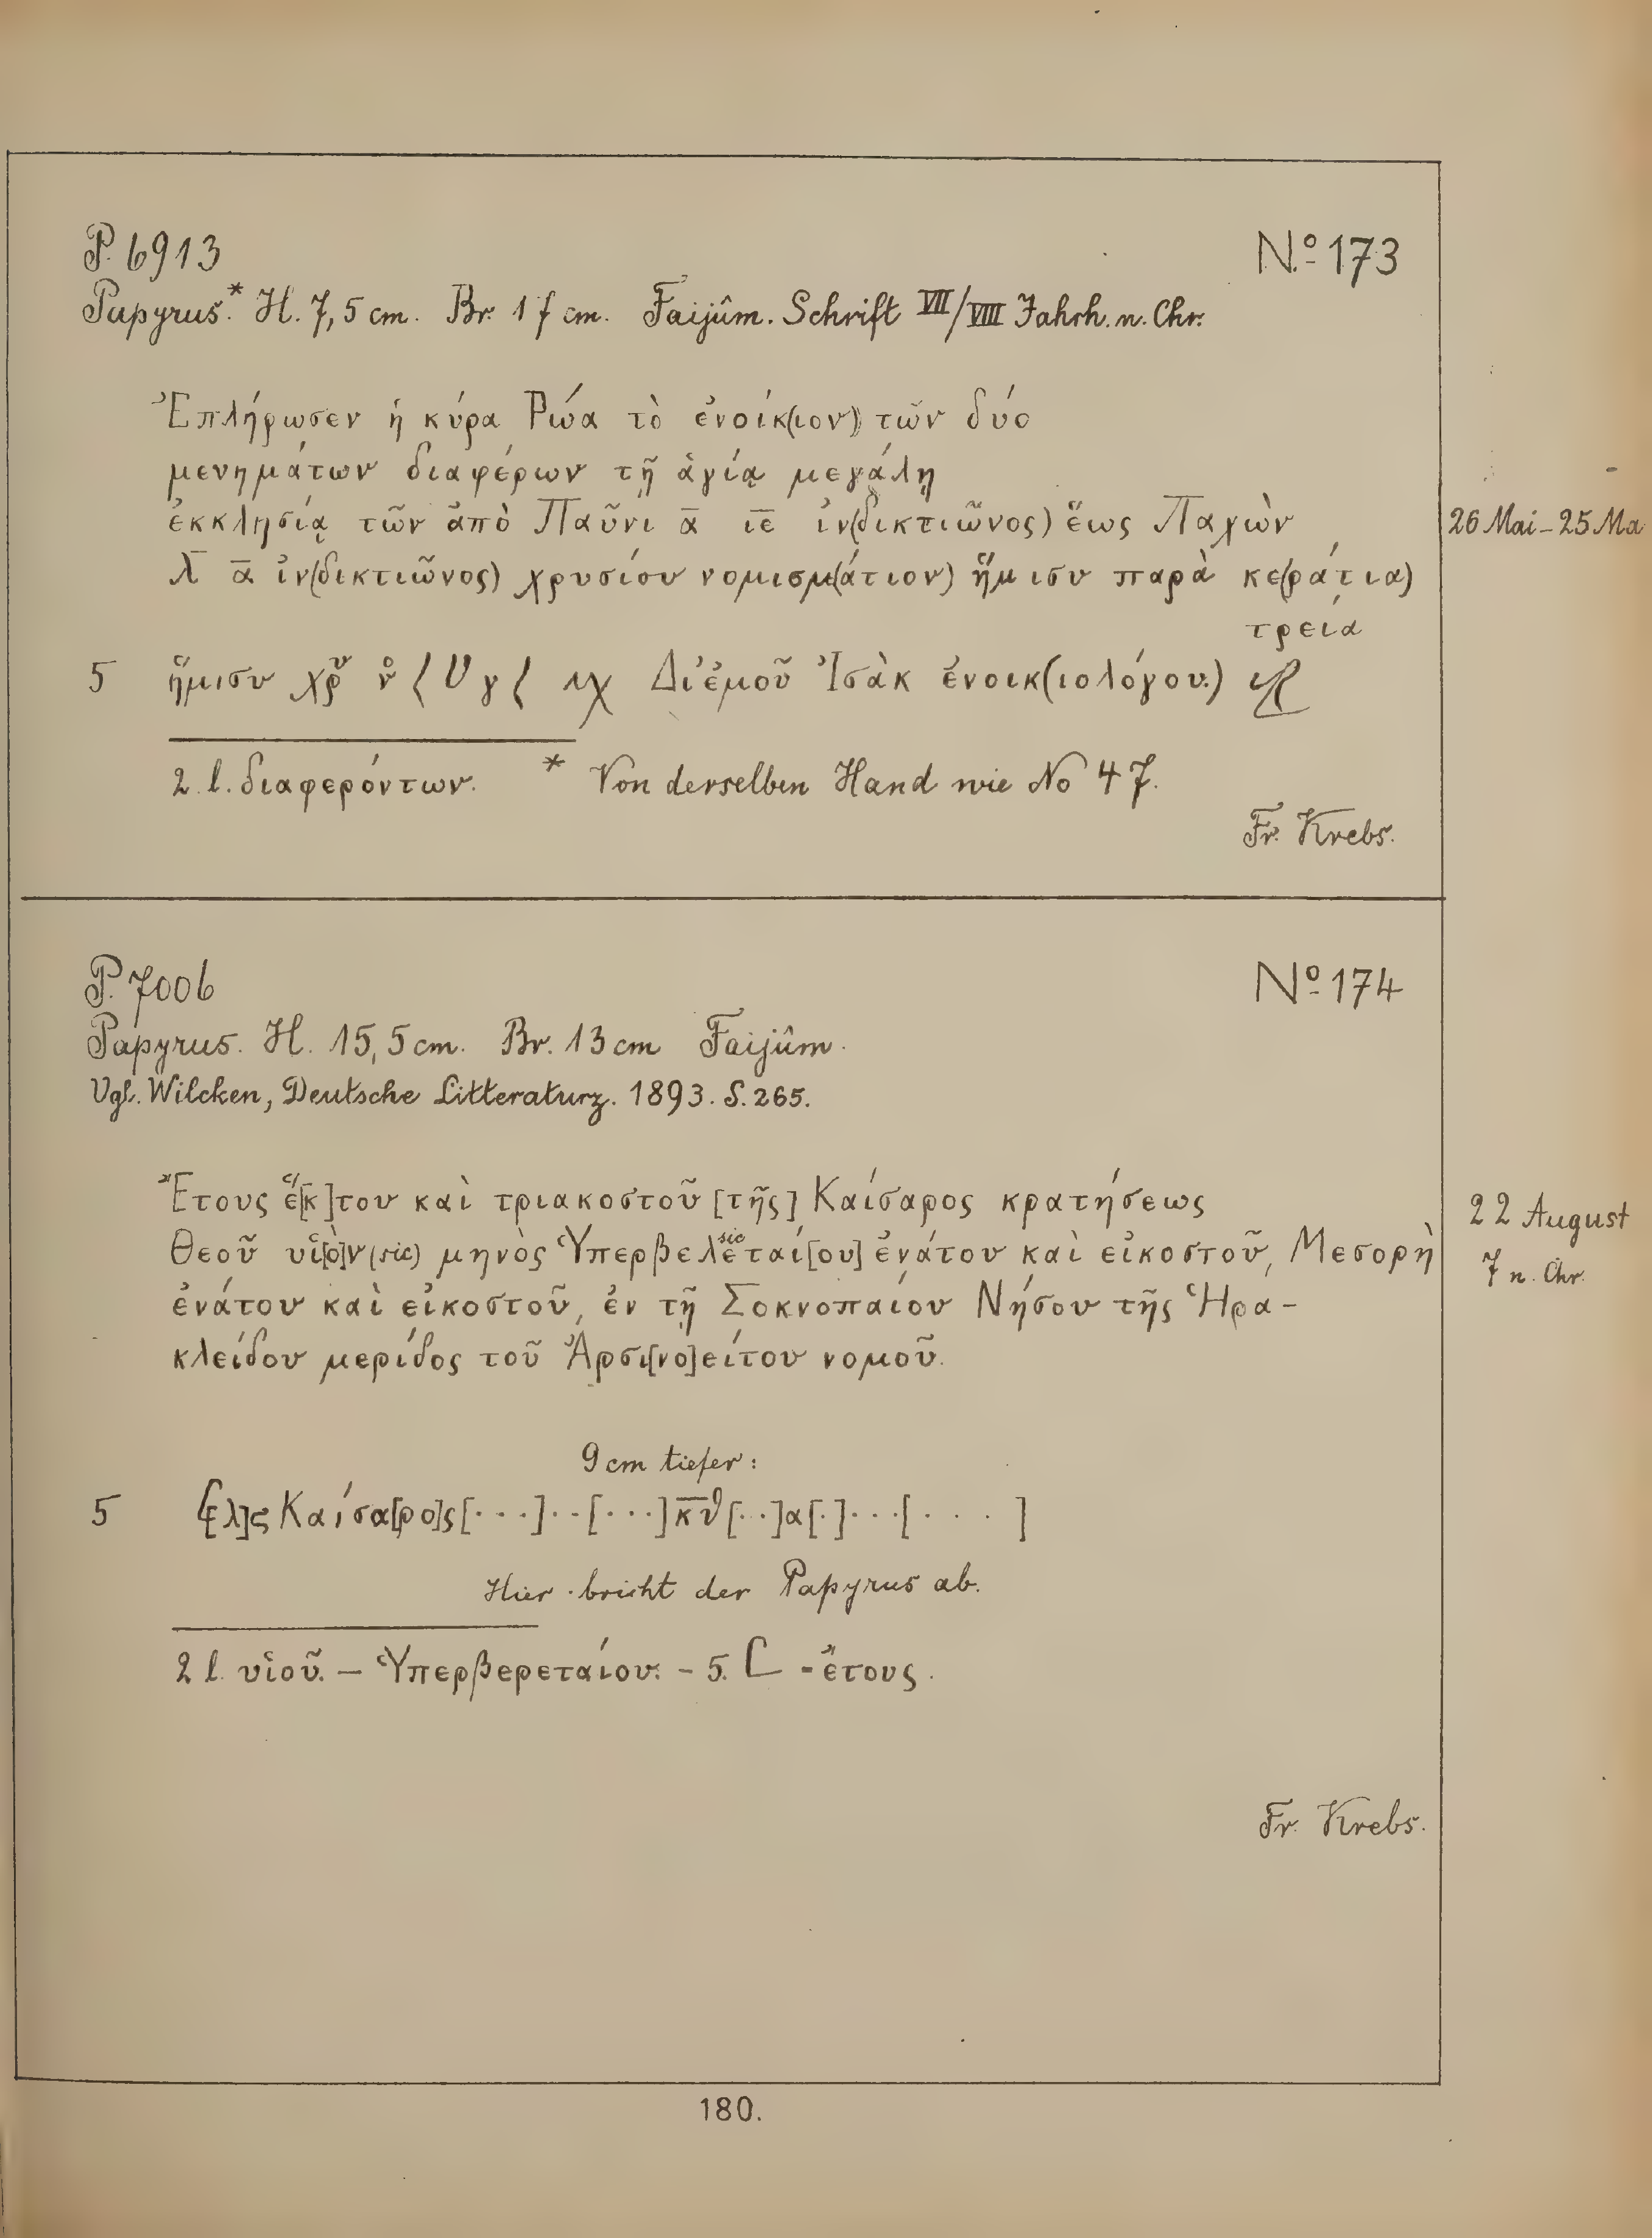 P. 6913
No 173
Papyrus.* H. 7,5 cm. Br. 17 cm. Faijûm. Schrift VII/VIII Jahrh. n. Chr.
Ἐπλήρωσεν ἡ κύρα Ῥώα τὸ ἐνοίκ(ιον) τῶν δύο
μενημάτων διαφέρων τῇ ἁγίᾳ μεγάλῃ
ἐκκλησίᾳ τῶν ἀπὸ Παῦνι α̅ ι̅ε̅ ἰν(δικτιῶνος) ἕως Παχὼν
26 Mai - 25 Ma
λ̅ α̅ ἰν(δικτιῶνος) χρυσίου νομισμ(άτιον) ἥμισυ παρὰ κε(ράτια)
τρεία
5 ἥμισυ χρ ν Υ γ Δι' ἐμοῦ Ἰσὰκ ἐνοικ(ιολόγου.)
2. l. διαφερόντων. * Von derselben Hand wie No 47.
Fr. Krebs.
P. 7006
No 174
Papyrus. H. 15,5 cm. Br. 13 cm Faijûm.
Vgl. Wilcken, Deutsche Litteraturz. 1893. S. 265.
Ἔτους ἕ[κ]του καὶ τριακοστοῦ [τῆς] Καίσαρος κρατήσεως
22 August
Θεοῦ υἱ[ὸ]ν (sic) μηνὸς Ὑπερβελεταί[ου] ἐνάτου καὶ εἰκοστοῦ, Μεσορὴ
sic
7 n. Chr.
ἐνάτου καὶ εἰκοστοῦ, ἐν τῇ Σοκνοπαίου Νήσου τῆς Ἡρα-
κλείδου μερίδος τοῦ Ἀρσι[νο]είτου νομοῦ.
9 cm tiefer:
5 L [λ]ϛ Καίσα[ρο]ς [· · ·] · · [· · ·] κ̅θ̅ [· ·] α [·] · · · [ · · · ]
Hier bricht der Papyrus ab.
2 l. υἱοῦ. — Ὑπερβερεταίου. - 5. L = ἔτους.
Fr. Krebs.
180.